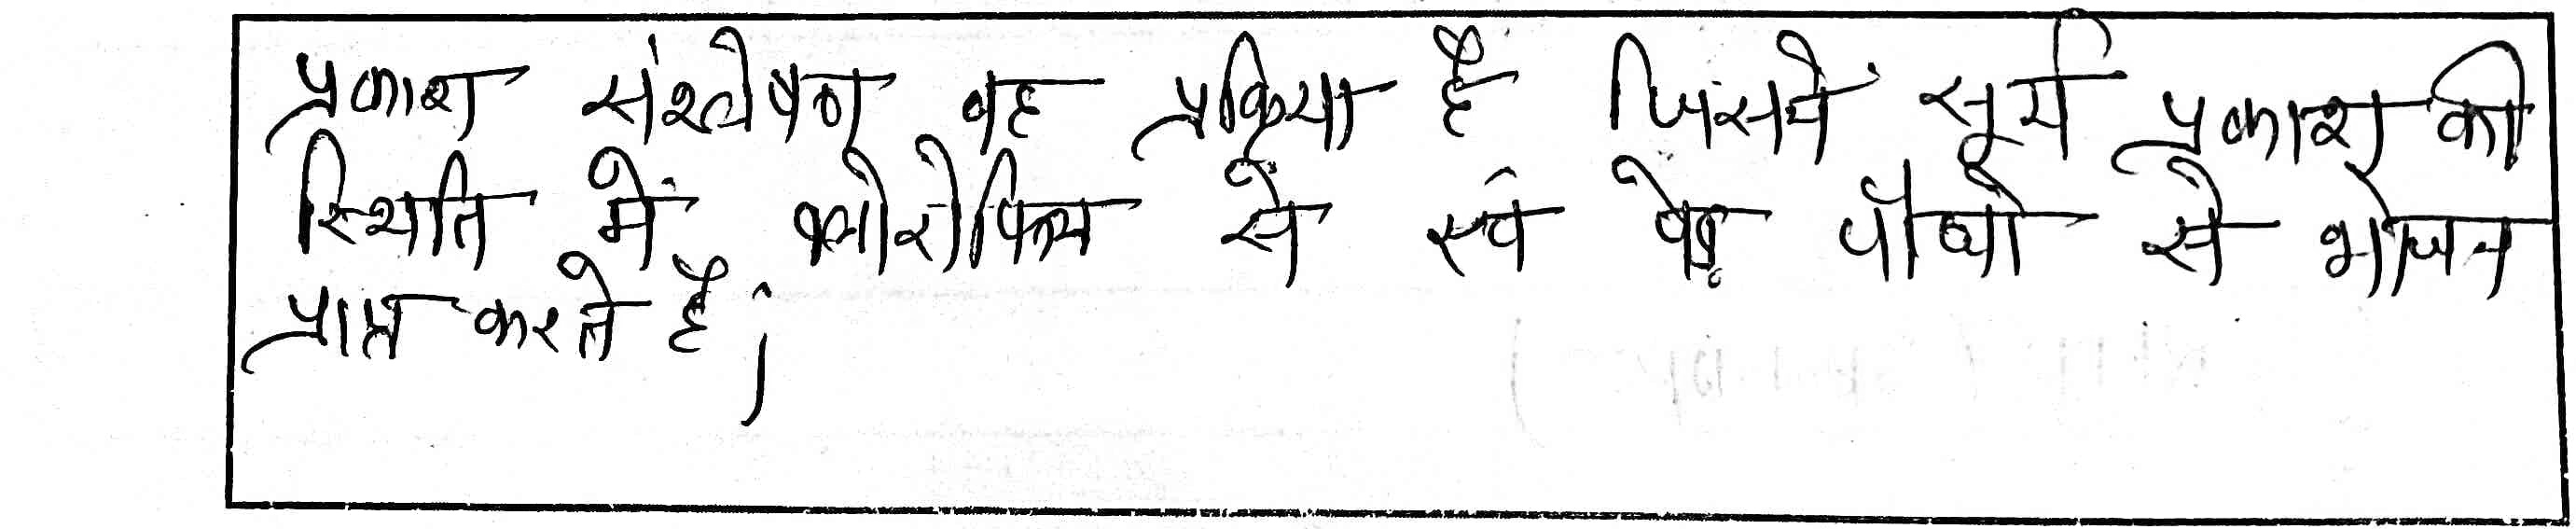 प्रकाश संश्लेषण वह प्रक्रिया है जिसमें सूर्य प्रकाश की
स्थिति में क्लोरोफिल से स्वं पेड़ पौधो से भोजन
प्राप्त करते है।